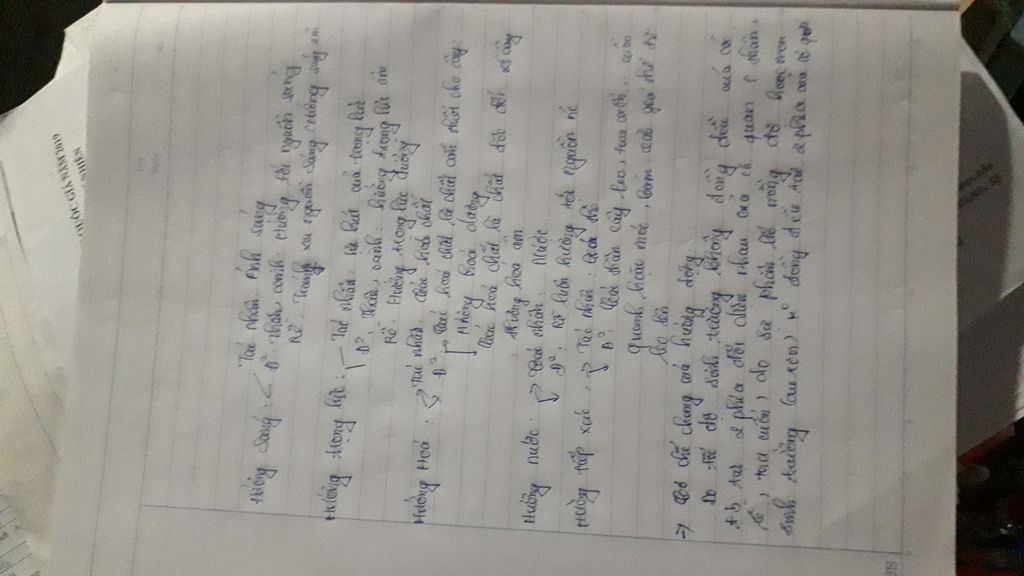 Hướng sáng: Tác nhân: Ánh sáng
Đ²: Thân, cành: Hướng tới nguồn sáng
Rễ: Tránh xa nguồn sáng (Hướng sáng âm
Hướng trọng lực: Tác nhân: lực hút của trọng lực
Đ²: Thân, cành: hướng trọng lực âm
Rễ: Hướng trọng lực dương
Hướng Hoá: Tác nhân: Các hoá chất
Đ² Các hoá chất là chất cần thiết cho cây:
Hướng hoá dương
Các hoá chất là chất độc đối với cây
Hướng hoá âm
Hướng nước: Tác nhân: Nước
Đ²: Rễ luôn hướng tới nguồn nc
Hướng tiếp xúc: Tác nhân: Giá thể
Đ²: Các thân cây leo, tua cuốn
quanh, hoặc móc, bám vào giá thể để
leo lên
→ Cơ chế chung của hướng động:
Do tốc độ sinh trưởng không đồng đều của các
tb tại 2 phía đối diện nhau của cơ quan (thân,
rễ, tua cuốn), do sự phân bố nồng độ hoocmon
sinh trưởng (auxin) k° đồng đều tại 2 phía của cơ quan